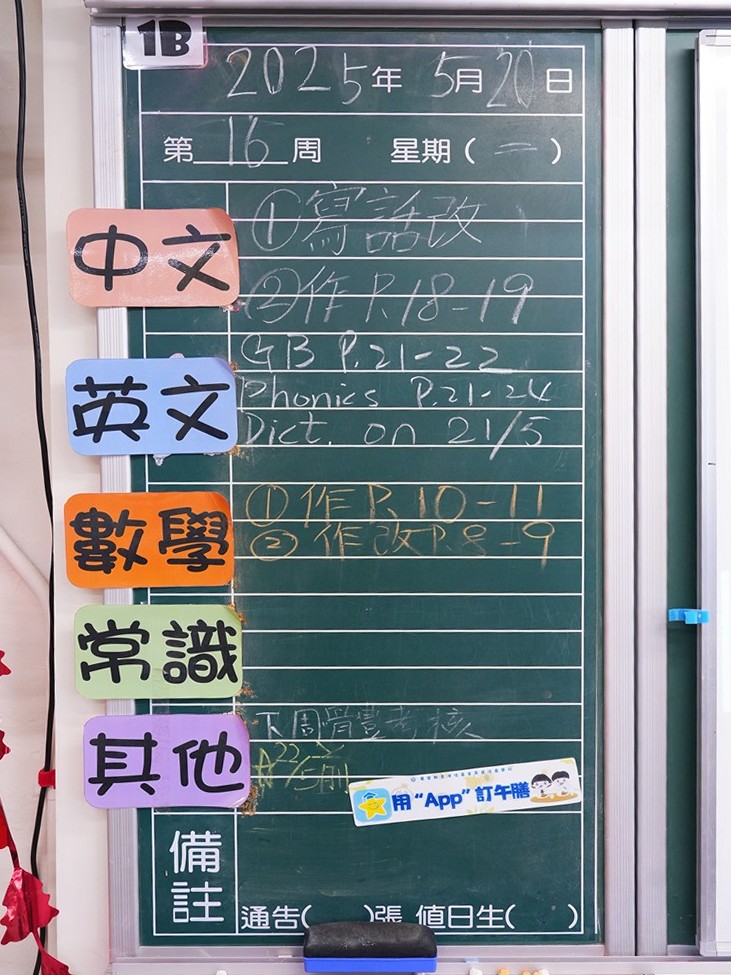 1B
2025年 5月20日
第 16 周 星期( 二 )
中文
①寫話改
②作 P.18-19
英文
GB P.21-22
Phonics P.21-24
Dict. on 21/5
數學
①作 P.10-11
②作改 P.8-9
常識
其他
下周視藝考核
22/5前
用“App”訂午膳
備註
通告( )張 值日生( )